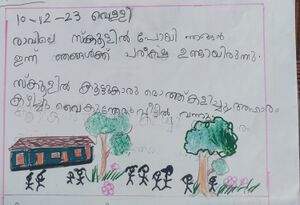 10-12-23 വെള്ളി
രാവിലെ സ്കൂളിൽ പോയി ഞങ്ങൾ
ഇന്ന് ഞങ്ങൾക്ക് പരീക്ഷ ഉണ്ടായിരുന്നു.
സ്കൂളിൽ കൂട്ടുകാരു മൊത്ത് കളിച്ചു ആഹാരം
കഴിച്ചു വൈകുന്നേരം വീട്ടിൽ വന്നു